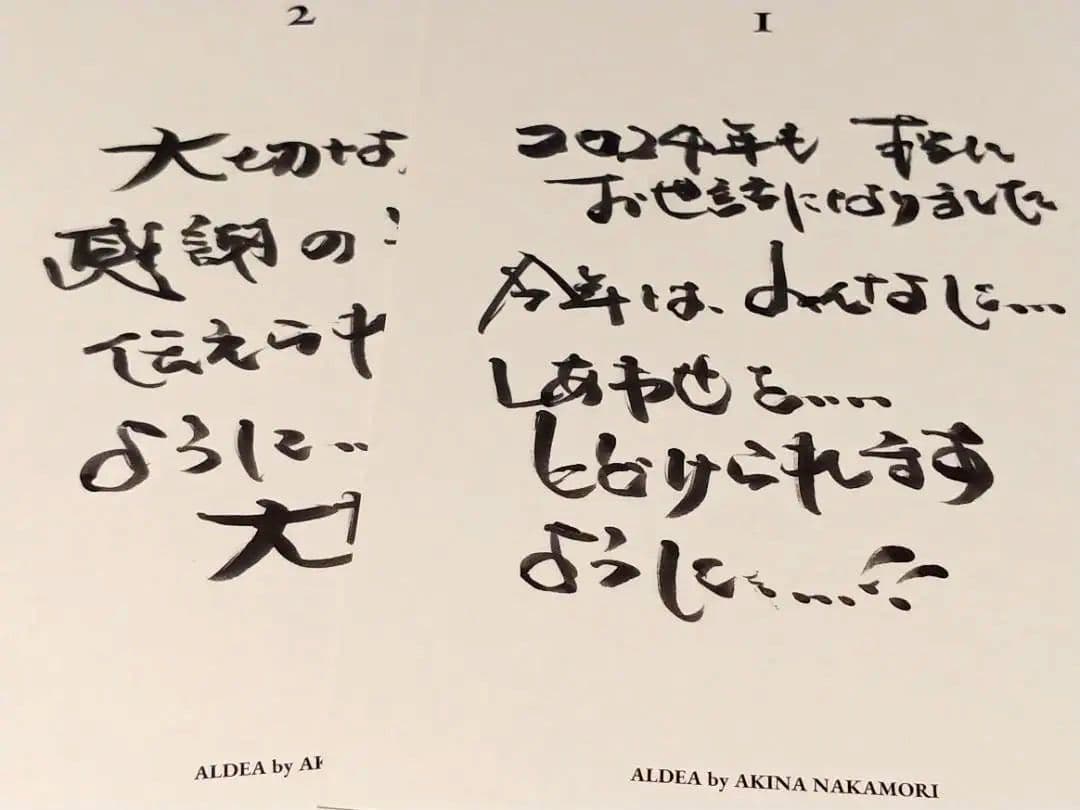 1
2024年も 本当に
お世話になりました
今年は、みんなに....
しあわせを.....
とどけられます
ように.....
ALDEA by AKINA NAKAMORI
2
大切な
感謝の
伝えら
ように..
大
ALDEA by AK